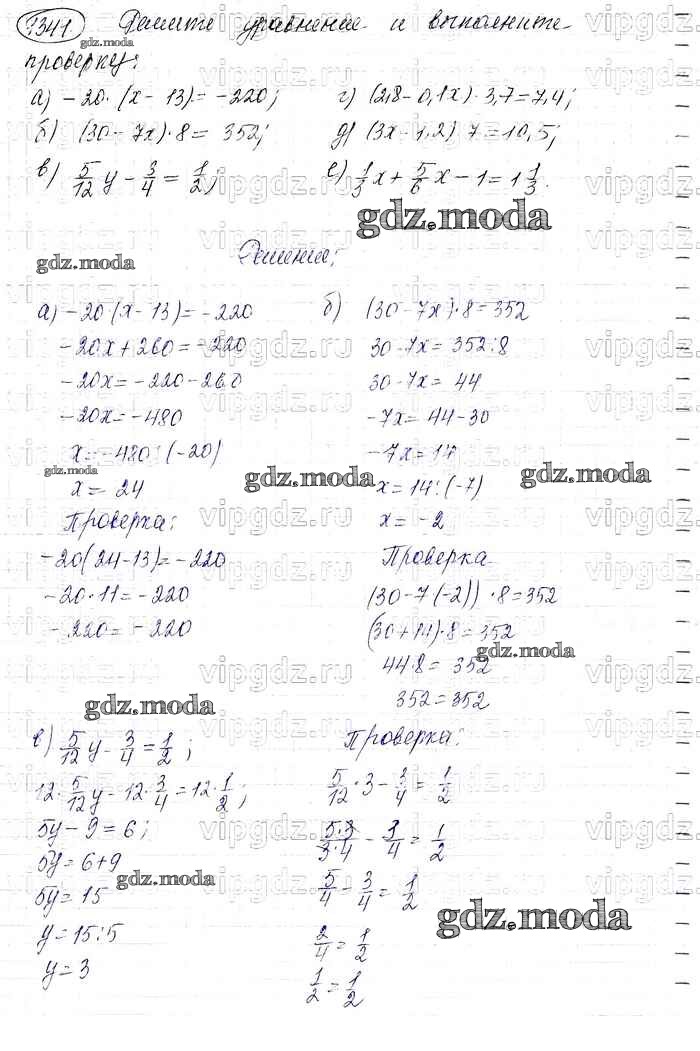 1341 Решите уравнение и выполните
проверку:
а) -20·(x-13)=-220;
б) (30-7x)·8=352;
в) 5/12 y - 3/4 = 1/2;
г) (2,8-0,1x)·3,7=7,4;
д) (3x-1,2)·7=10,5;
е) 1/3 x + 5/6 x - 1 = 1 1/3.
gdz.moda
gdz.moda
Решение:
а) -20·(x-13)=-220
-20x+260=-220
-20x=-220-260
-20x=-480
x=-480:(-20)
x=24
Проверка:
-20(24-13)=-220
-20·11=-220
-220=-220
б) (30-7x)·8=352
30-7x=352:8
30-7x=44
-7x=44-30
-7x=14
x=14:(-7)
x=-2
Проверка
(30-7(-2))·8=352
(30+14)·8=352
44·8=352
352=352
gdz.moda
gdz.moda
gdz.moda
gdz.moda
gdz.moda
в) 5/12 y - 3/4 = 1/2;
12·5/12 y - 12·3/4 = 12·1/2;
5y-9=6;
5y=6+9
5y=15
y=15:5
y=3
Проверка:
5/12·3 - 3/4 = 1/2
5·3/3·4 - 3/4 = 1/2
5/4 - 3/4 = 1/2
2/4 = 1/2
1/2 = 1/2
gdz.moda
gdz.moda
gdz.moda
vipgdz.ru